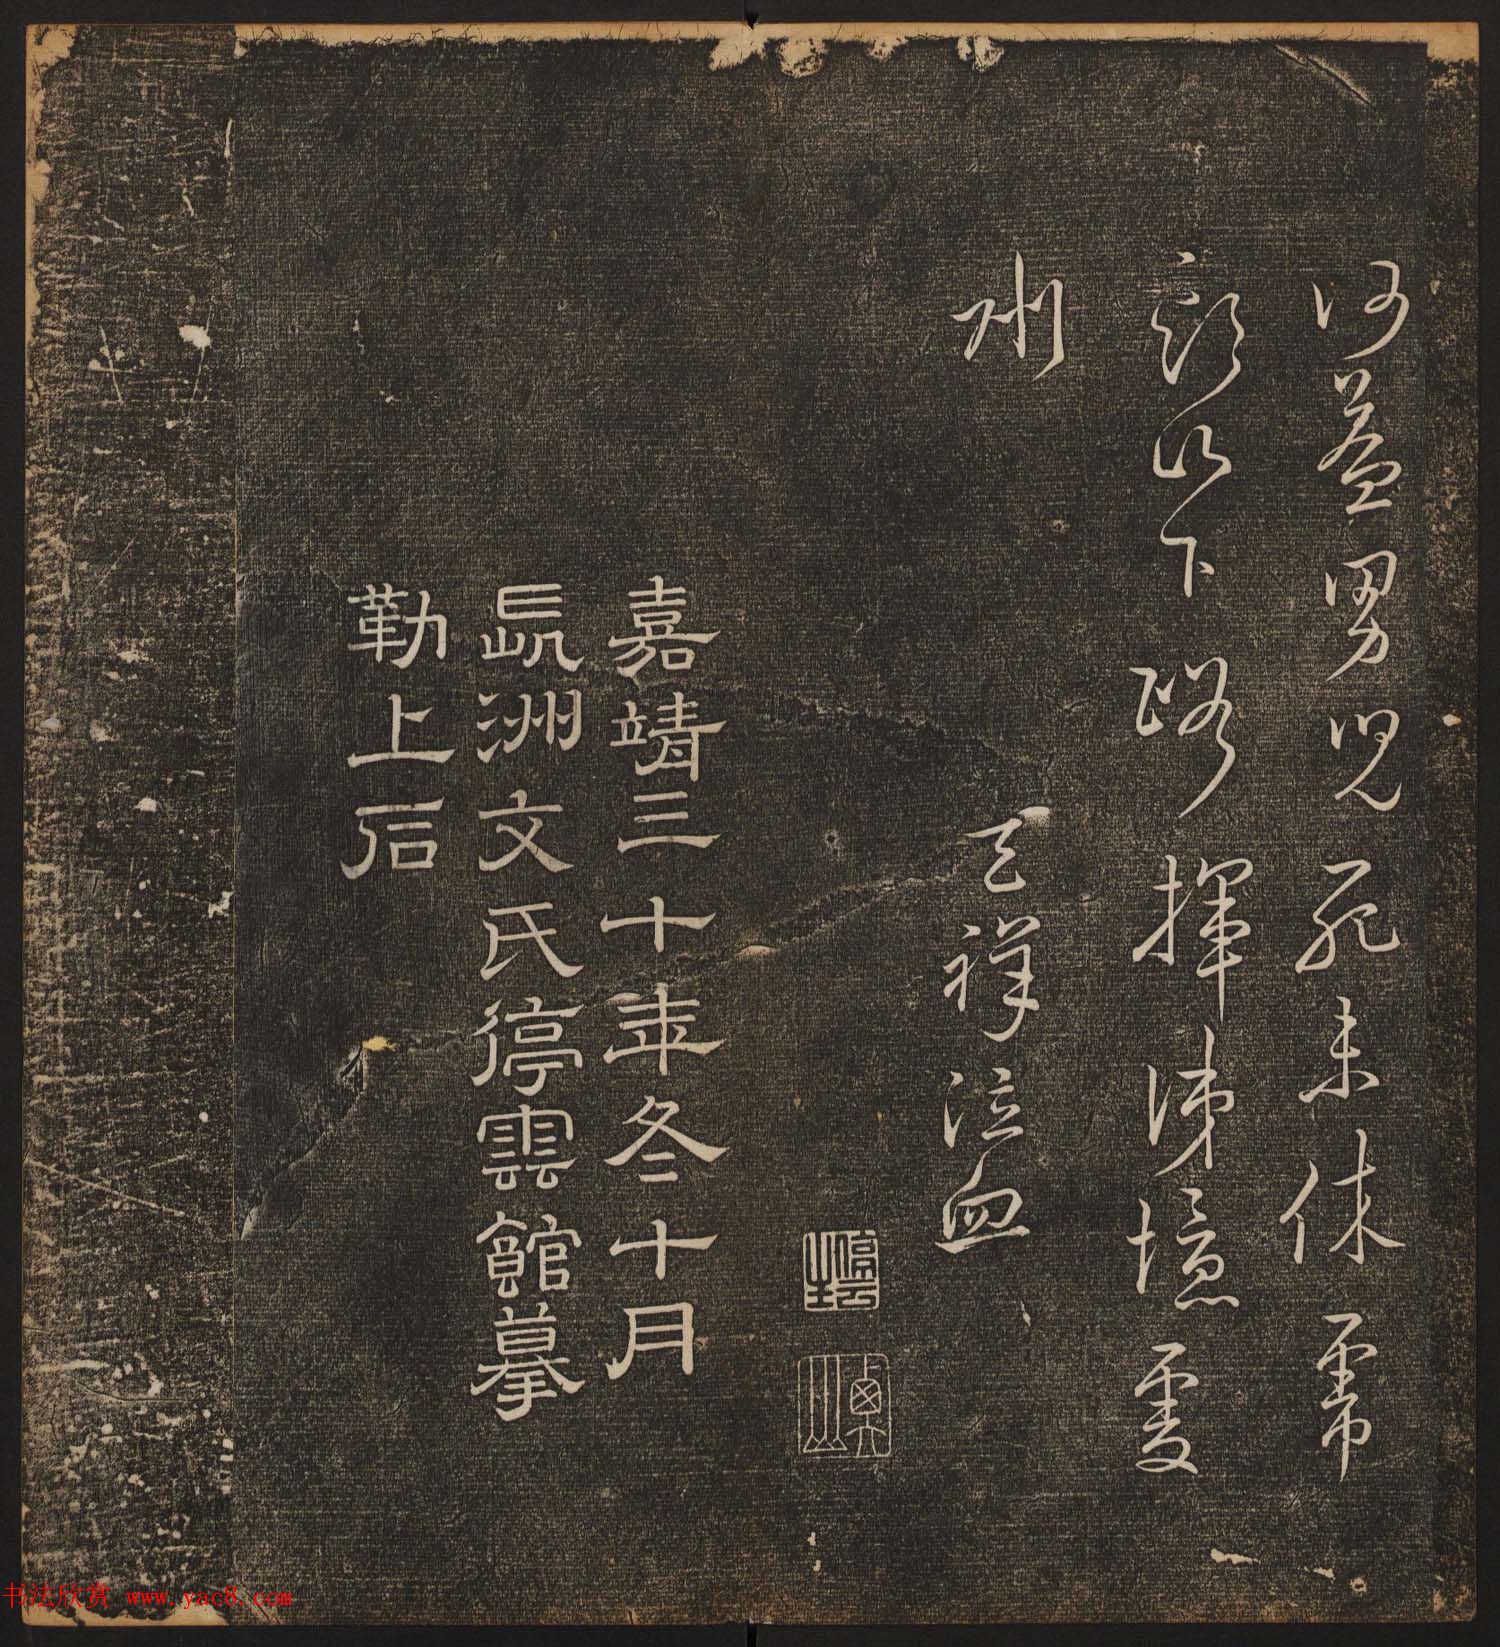 何益男兒死未休虎
頭山下路揮涕憶虔
州
天祥泣血
嘉靖三十年冬十月
長洲文氏停雲館摹
勒上石
书法欣赏 www.yac8.com